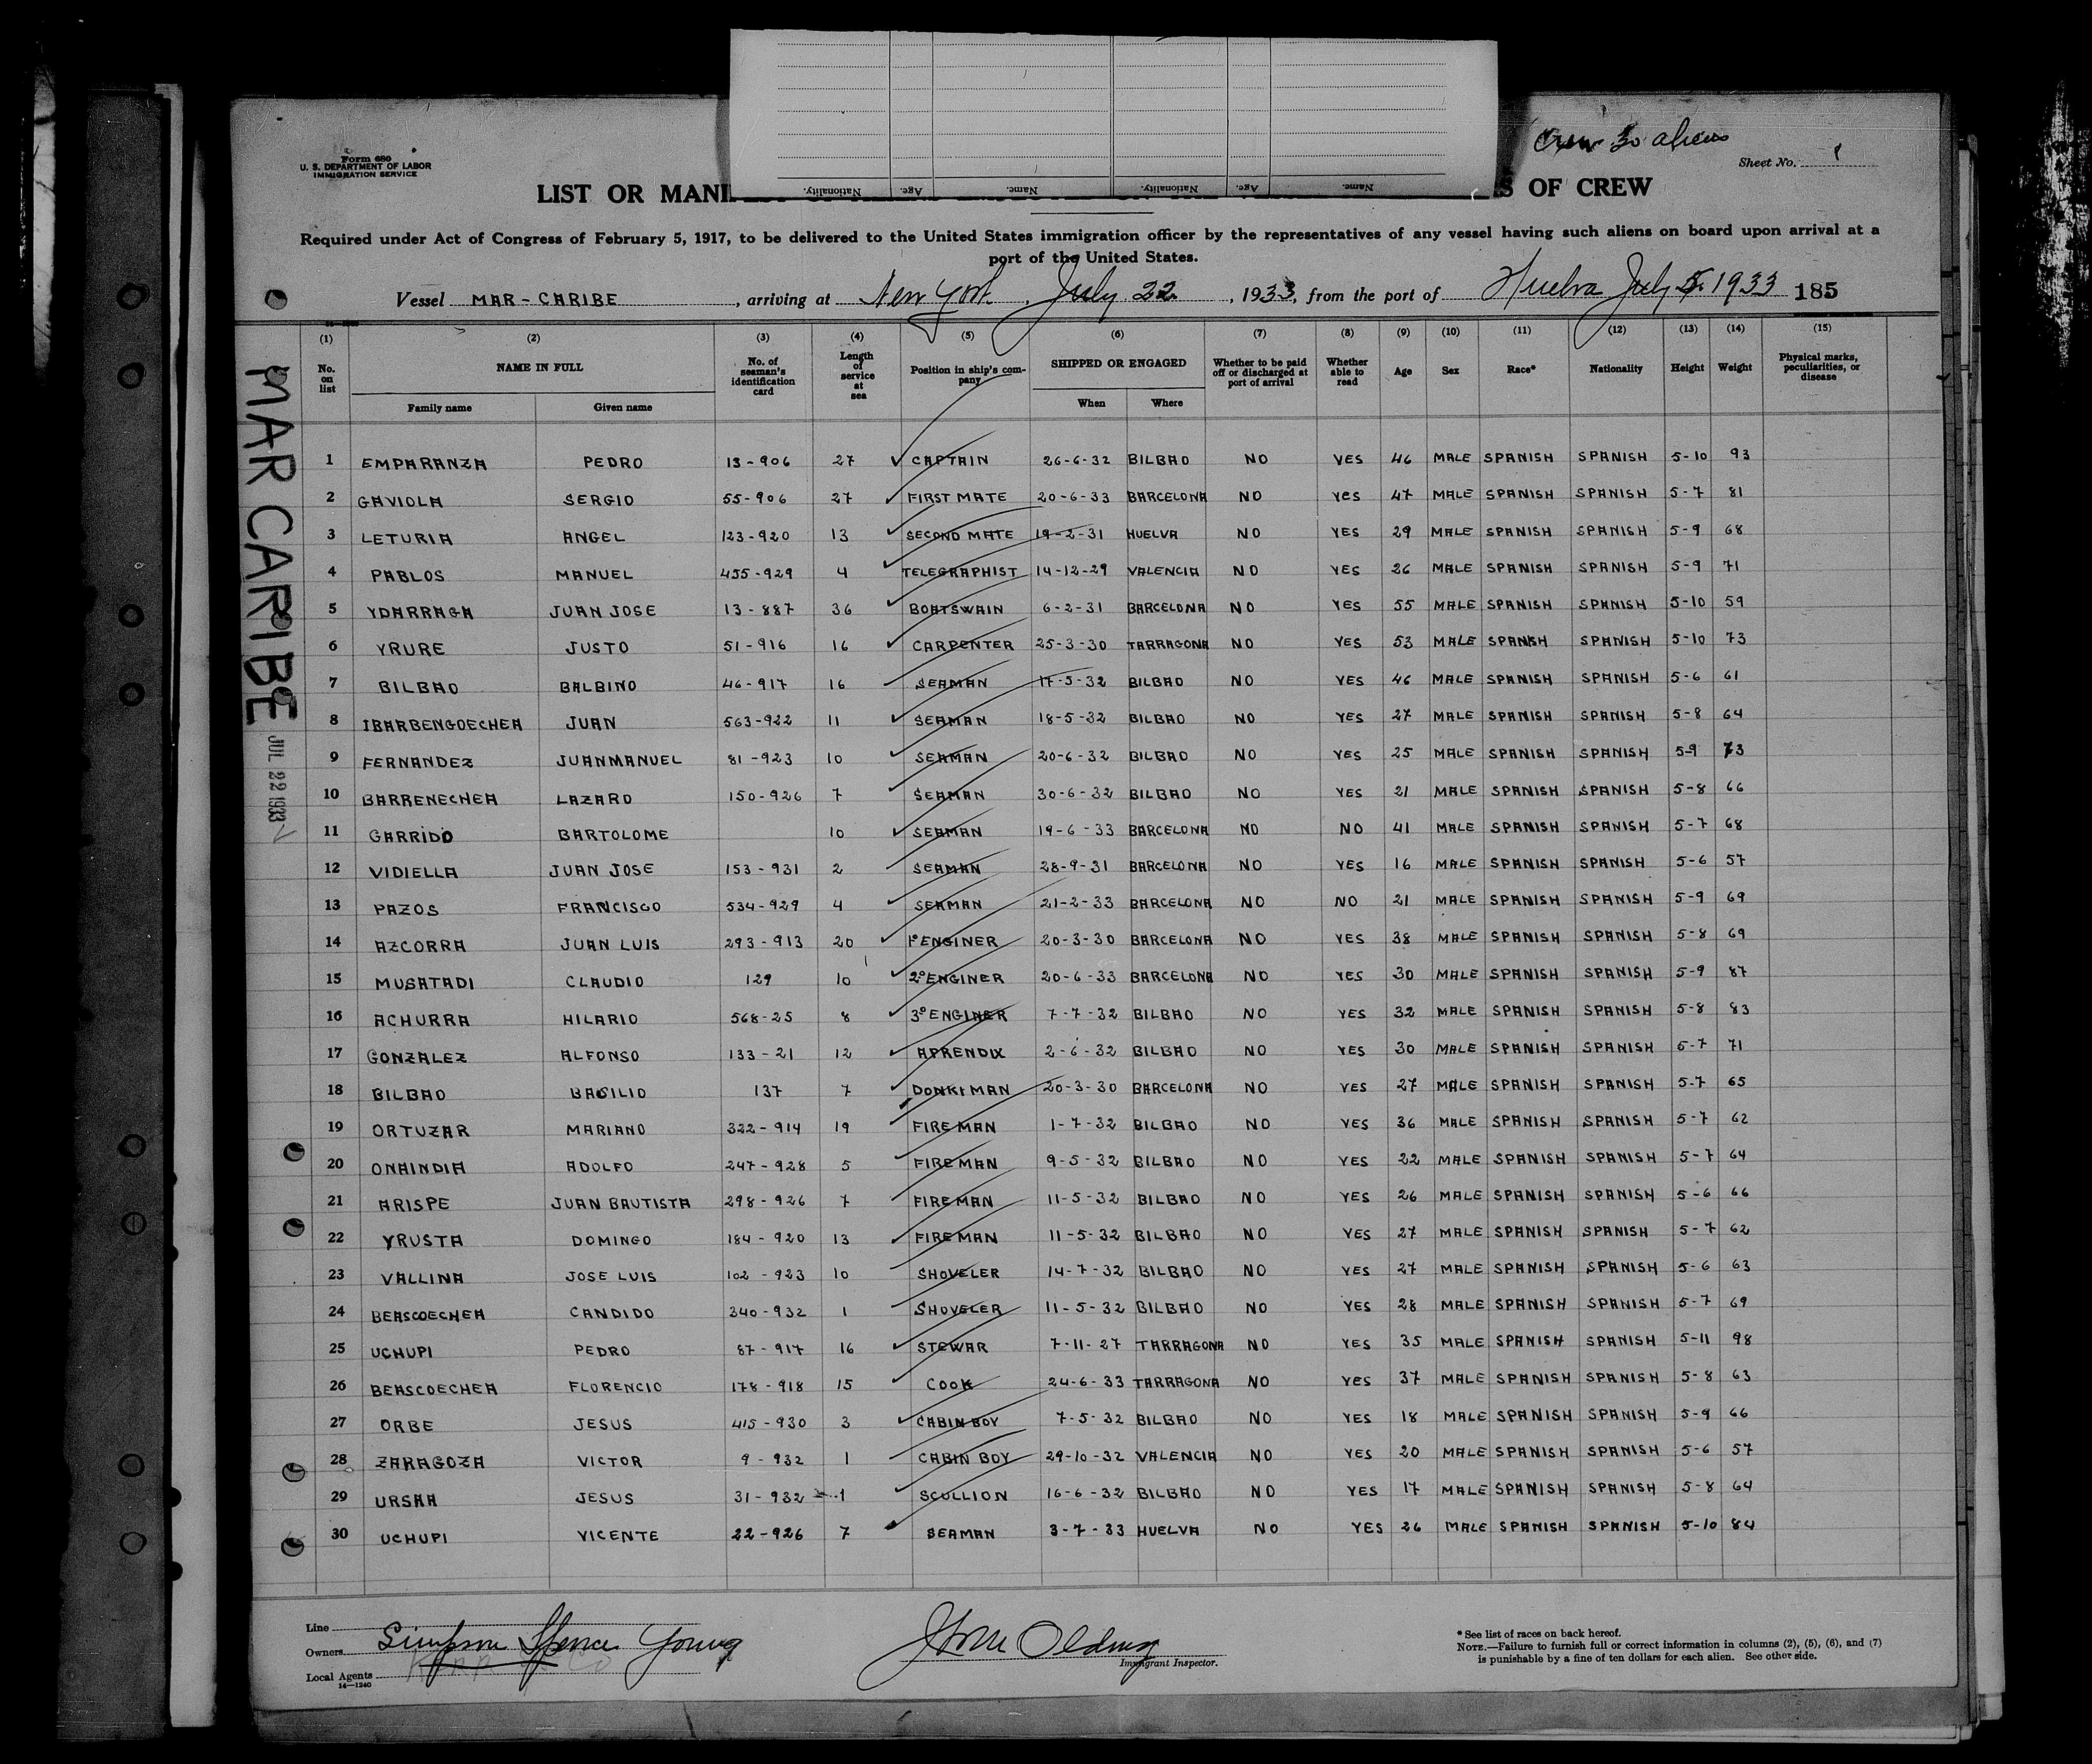 Nationality. Age. Name. Nationality. Age. Name.
Crew 30 aliens
Form 680
U. S. DEPARTMENT OF LABOR
IMMIGRATION SERVICE
Sheet No. 1
LIST OR MANI S OF CREW
Required under Act of Congress of February 5, 1917, to be delivered to the United States immigration officer by the representatives of any vessel having such aliens on board upon arrival at a
port of the United States.
Vessel MAR-CARIBE, arriving at New York, July 22, 1933, from the port of Huelva July 5. 1933 185
(1) (2) (3) (4) (5) (6) (7) (8) (9) (10) (11) (12) (13) (14) (15)
No. on list NAME IN FULL No. of seaman's identification card Length of service at sea Position in ship's company SHIPPED OR ENGAGED Whether to be paid off or discharged at port of arrival Whether able to read Age Sex Race* Nationality Height Weight Physical marks, peculiarities, or disease
Family name Given name When Where
1 EMPARANZA PEDRO 13-906 27 CAPTAIN 26-6-32 BILBAO NO YES 46 MALE SPANISH SPANISH 5-10 93
2 GAVIOLA SERGIO 55-906 27 FIRST MATE 20-6-33 BARCELONA NO YES 47 MALE SPANISH SPANISH 5-7 81
3 LETURIA ANGEL 123-920 13 SECOND MATE 19-2-31 HUELVA NO YES 29 MALE SPANISH SPANISH 5-9 68
4 PABLOS MANUEL 455-929 4 TELEGRAPHIST 14-12-29 VALENCIA NO YES 26 MALE SPANISH SPANISH 5-9 71
5 YDARRAGA JUAN JOSE 13-887 36 BOATSWAIN 6-2-31 BARCELONA NO YES 55 MALE SPANISH SPANISH 5-10 59
6 YRURE JUSTO 51-916 16 CARPENTER 25-3-30 TARRAGONA NO YES 53 MALE SPANISH SPANISH 5-10 73
7 BILBAO BALBINO 46-917 16 SEAMAN 17-5-32 BILBAO NO YES 46 MALE SPANISH SPANISH 5-6 61
8 IBARBENGOECHEA JUAN 563-922 11 SEAMAN 18-5-32 BILBAO NO YES 27 MALE SPANISH SPANISH 5-8 64
9 FERNANDEZ JUANMANUEL 81-923 10 SEAMAN 20-6-32 BILBAO NO YES 25 MALE SPANISH SPANISH 5-9 73
10 BARRENECHEA LAZARO 150-926 7 SEAMAN 30-6-32 BILBAO NO YES 21 MALE SPANISH SPANISH 5-8 66
11 GARRIDO BARTOLOME 10 SEAMAN 19-6-33 BARCELONA NO NO 41 MALE SPANISH SPANISH 5-7 68
12 VIDIELLA JUAN JOSE 153-931 2 SEAMAN 28-9-31 BARCELONA NO YES 16 MALE SPANISH SPANISH 5-6 57
13 PAZOS FRANCISCO 534-929 4 SEAMAN 21-2-33 BARCELONA NO NO 21 MALE SPANISH SPANISH 5-9 69
14 AZCORRA JUAN LUIS 293-913 20 1º ENGINER 20-3-30 BARCELONA NO YES 38 MALE SPANISH SPANISH 5-8 69
15 MUSATADI CLAUDIO 129 10 2º ENGINER 20-6-33 BARCELONA NO YES 30 MALE SPANISH SPANISH 5-9 87
16 ACHURRA HILARIO 568-25 8 3º ENGINER 7-7-32 BILBAO NO YES 32 MALE SPANISH SPANISH 5-8 83
17 GONZALEZ ALFONSO 133-21 12 APRENDIX 2-6-32 BILBAO NO YES 30 MALE SPANISH SPANISH 5-7 71
18 BILBAO BASILIO 137 7 DONKIMAN 20-3-30 BARCELONA NO YES 27 MALE SPANISH SPANISH 5-7 65
19 ORTUZAR MARIANO 322-914 19 FIREMAN 1-7-32 BILBAO NO YES 36 MALE SPANISH SPANISH 5-7 62
20 ONAINDIA ADOLFO 247-928 5 FIREMAN 9-5-32 BILBAO NO YES 22 MALE SPANISH SPANISH 5-7 64
21 ARISPE JUAN BAUTISTA 298-926 7 FIREMAN 11-5-32 BILBAO NO YES 26 MALE SPANISH SPANISH 5-6 66
22 YRUSTA DOMINGO 184-920 13 FIREMAN 11-5-32 BILBAO NO YES 27 MALE SPANISH SPANISH 5-7 62
23 VALLINA JOSE LUIS 102-923 10 SHOVELER 14-7-32 BILBAO NO YES 27 MALE SPANISH SPANISH 5-6 63
24 BEASCOECHEA CANDIDO 340-932 1 SHOVELER 11-5-32 BILBAO NO YES 28 MALE SPANISH SPANISH 5-7 69
25 UCHUPI PEDRO 87-917 16 STEWAR 7-11-27 TARRAGONA NO YES 35 MALE SPANISH SPANISH 5-11 98
26 BEASCOECHEA FLORENCIO 178-918 15 COOK 24-6-33 TARRAGONA NO YES 37 MALE SPANISH SPANISH 5-8 63
27 ORBE JESUS 415-930 3 CABIN BOY 7-5-32 BILBAO NO YES 18 MALE SPANISH SPANISH 5-9 66
28 ZARAGOZA VICTOR 9-932 1 CABIN BOY 29-10-32 VALENCIA NO YES 20 MALE SPANISH SPANISH 5-6 57
29 URSAA JESUS 31-932 1 SCULLION 16-6-32 BILBAO NO YES 17 MALE SPANISH SPANISH 5-8 64
30 UCHUPI VICENTE 22-926 7 SEAMAN 3-7-33 HUELVA NO YES 26 MALE SPANISH SPANISH 5-10 84
MAR CARIBE JUL 22 1933
Line
Owners Simpson Spence Young
Local Agents
14—1240
Immigrant Inspector.
* See list of races on back hereof.
NOTE.—Failure to furnish full or correct information in columns (2), (5), (6), and (7)
is punishable by a fine of ten dollars for each alien. See other side.